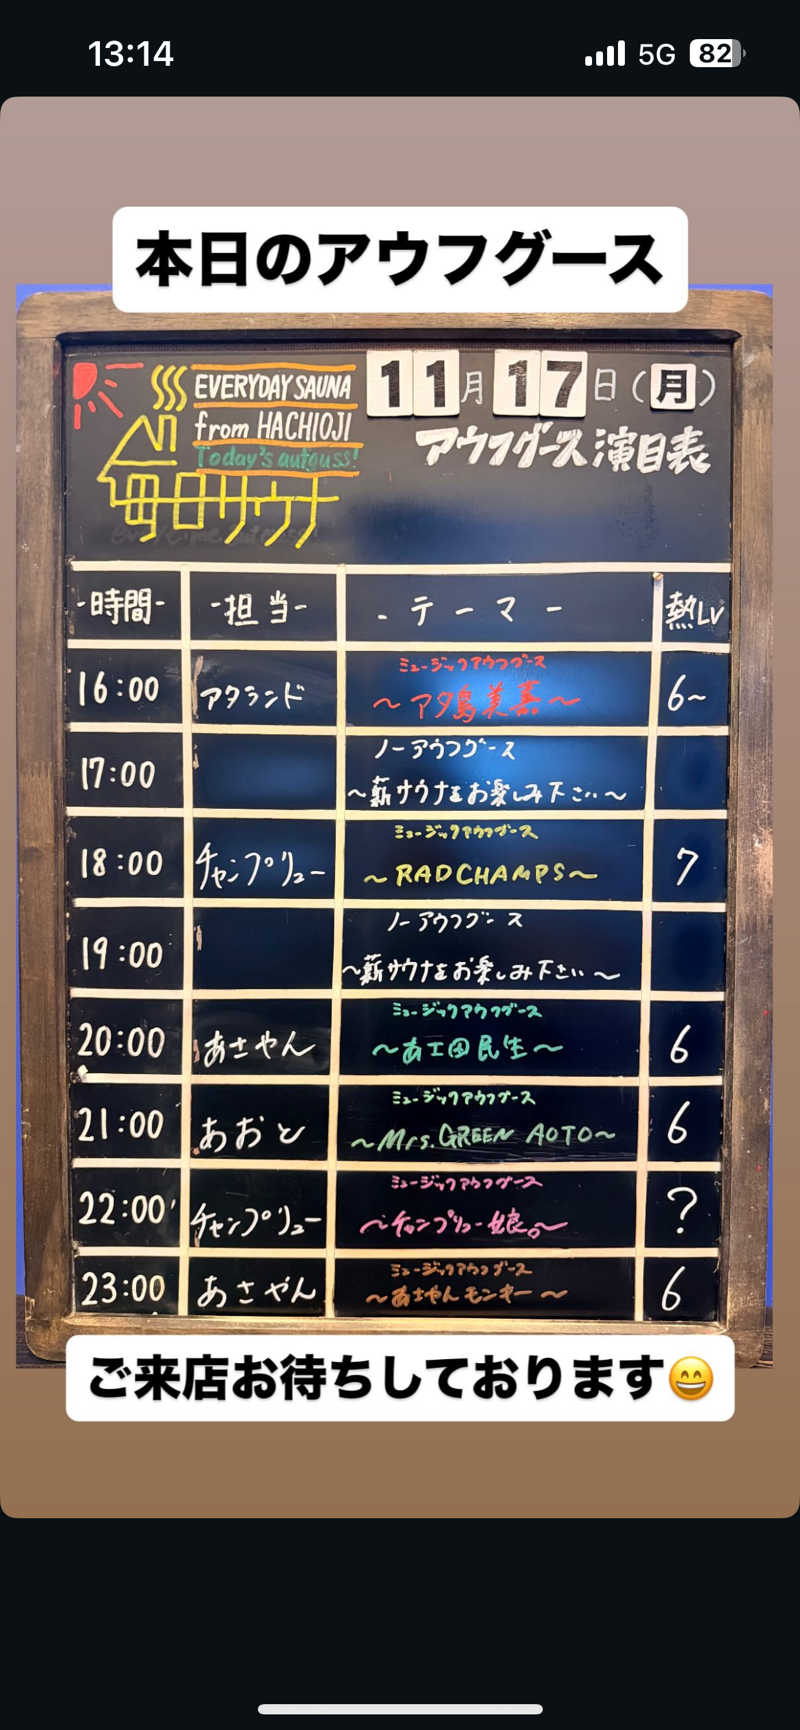 13:14
5G 82
本日のアウフグース
EVERYDAY SAUNA
from HACHIOJI
Today's aufguss!
毎日サウナ
11月17日(月)
アウフグース演目表
-時間- -担当- -テーマ- 熱LV
ミュージックアウフグース
16:00 アタランド 〜アタ島美嘉〜 6~
ノーアウフグース
17:00 〜薪サウナをお楽しみ下さい〜
ミュージックアウフグース
18:00 チャンプリュー 〜RADCHAMPS〜 7
ノーアウフグース
19:00 〜薪サウナをお楽しみ下さい〜
ミュージックアウフグース
20:00 あさやん 〜あ田民生〜 6
ミュージックアウフグース
21:00 あおと 〜Mrs.GREEN AOTO〜 6
ミュージックアウフグース
22:00 チャンプリュー 〜チャンプリュー娘。〜 ?
ミュージックアウフグース
23:00 あさやん 〜あさやんモンキー〜 6
ご来店お待ちしております😄